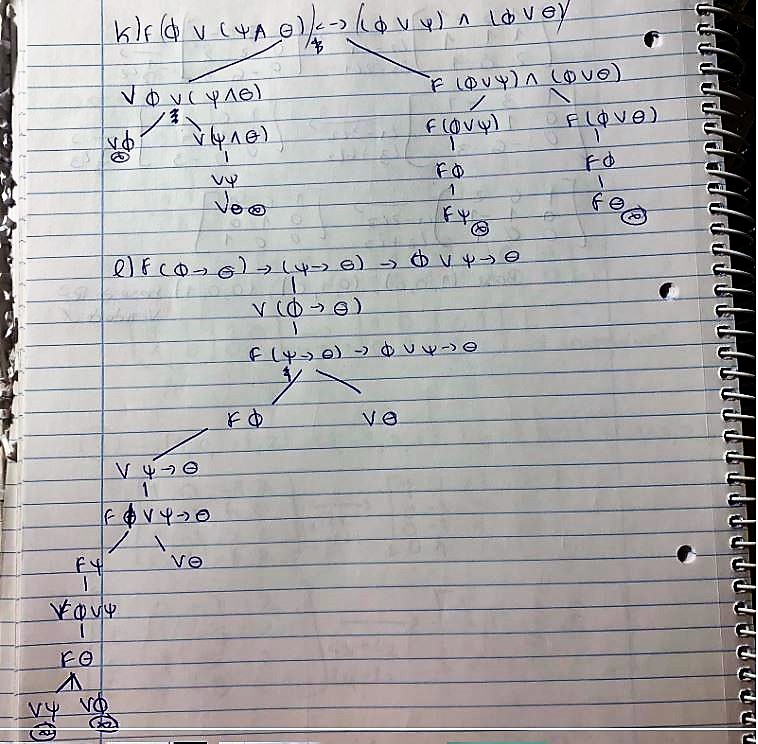 k) F (Φ ∨ (Ψ ∧ Θ)) <-> (Φ ∨ Ψ) ∧ (Φ ∨ Θ)
V Φ ∨ (Ψ ∧ Θ) F (Φ ∨ Ψ) ∧ (Φ ∨ Θ)
VΦ V(Ψ ∧ Θ) F(Φ ∨ Ψ) F(Φ ∨ Θ)
VΨ FΦ FΦ
VΘ ⊗ FΨ FΘ
l) F (Φ → Θ) → (Ψ → Θ) → Φ ∨ Ψ → Θ
V (Φ → Θ)
F (Ψ → Θ) → Φ ∨ Ψ → Θ
F Φ V Θ
V Ψ → Θ
F Φ ∨ Ψ → Θ
F Ψ V Θ
V Φ ∨ Ψ
F Θ
V Ψ V Φ
⊗ ⊗